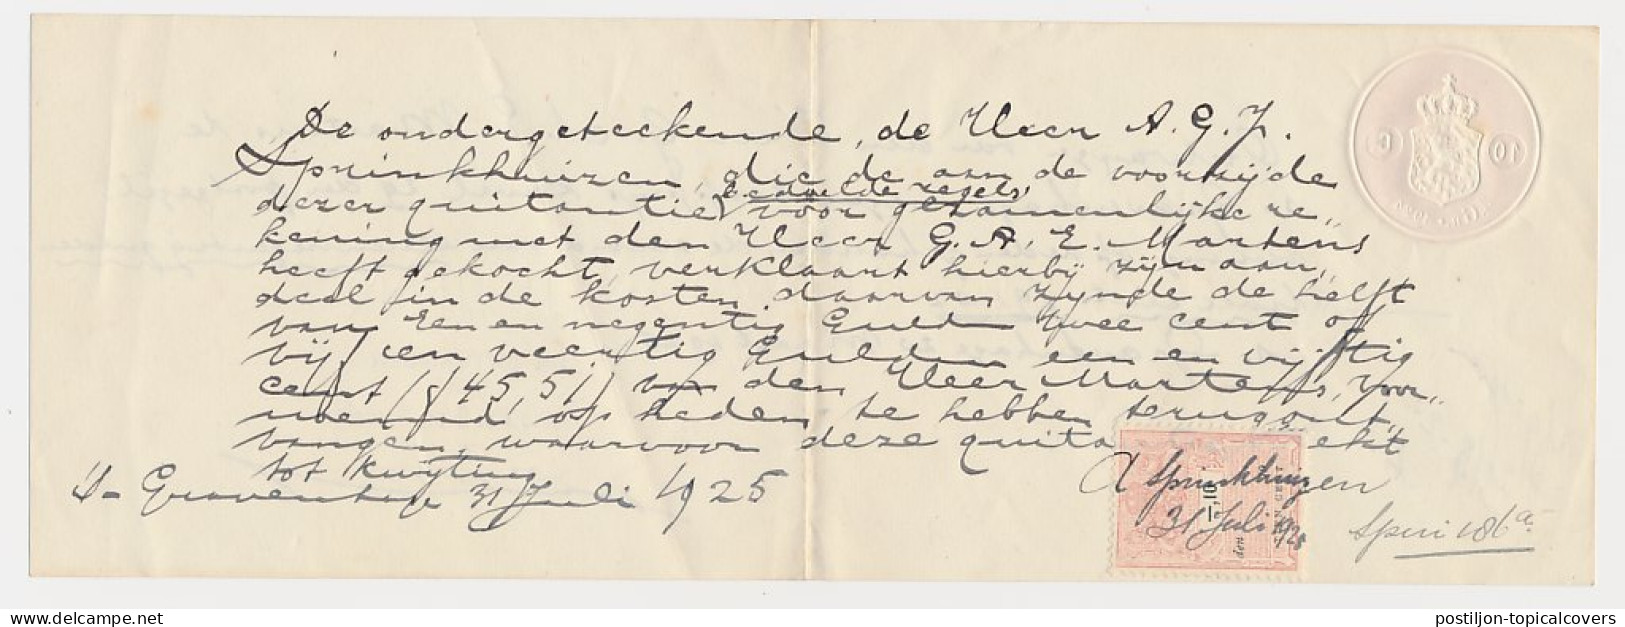 De ondergeteekende, de Heer A. G. J.
Sprinkhuizen, die de aan de voorzijde
bedoelde regels
dezer quitantie voor gezamenlijke re„
kening met den Heer G. A. E. Martens
heeft gekocht, verklaart hierbij zijn aan„
deel in de kosten daarvan zijnde de helft
van Een en negentig Guld twee cent of
vijf en veertig Gulden een en vijftig
cent (ƒ 45,51) van den Heer Martens, voor„
noemd, op heden te hebben terugont„
vangen, waarvoor deze quita ekt
tot kwijting
's-Gravenhage 31 Juli 1925
A Sprinkhuizen
31 Juli 1925
10
den
10 C
postiljon-topicalcovers